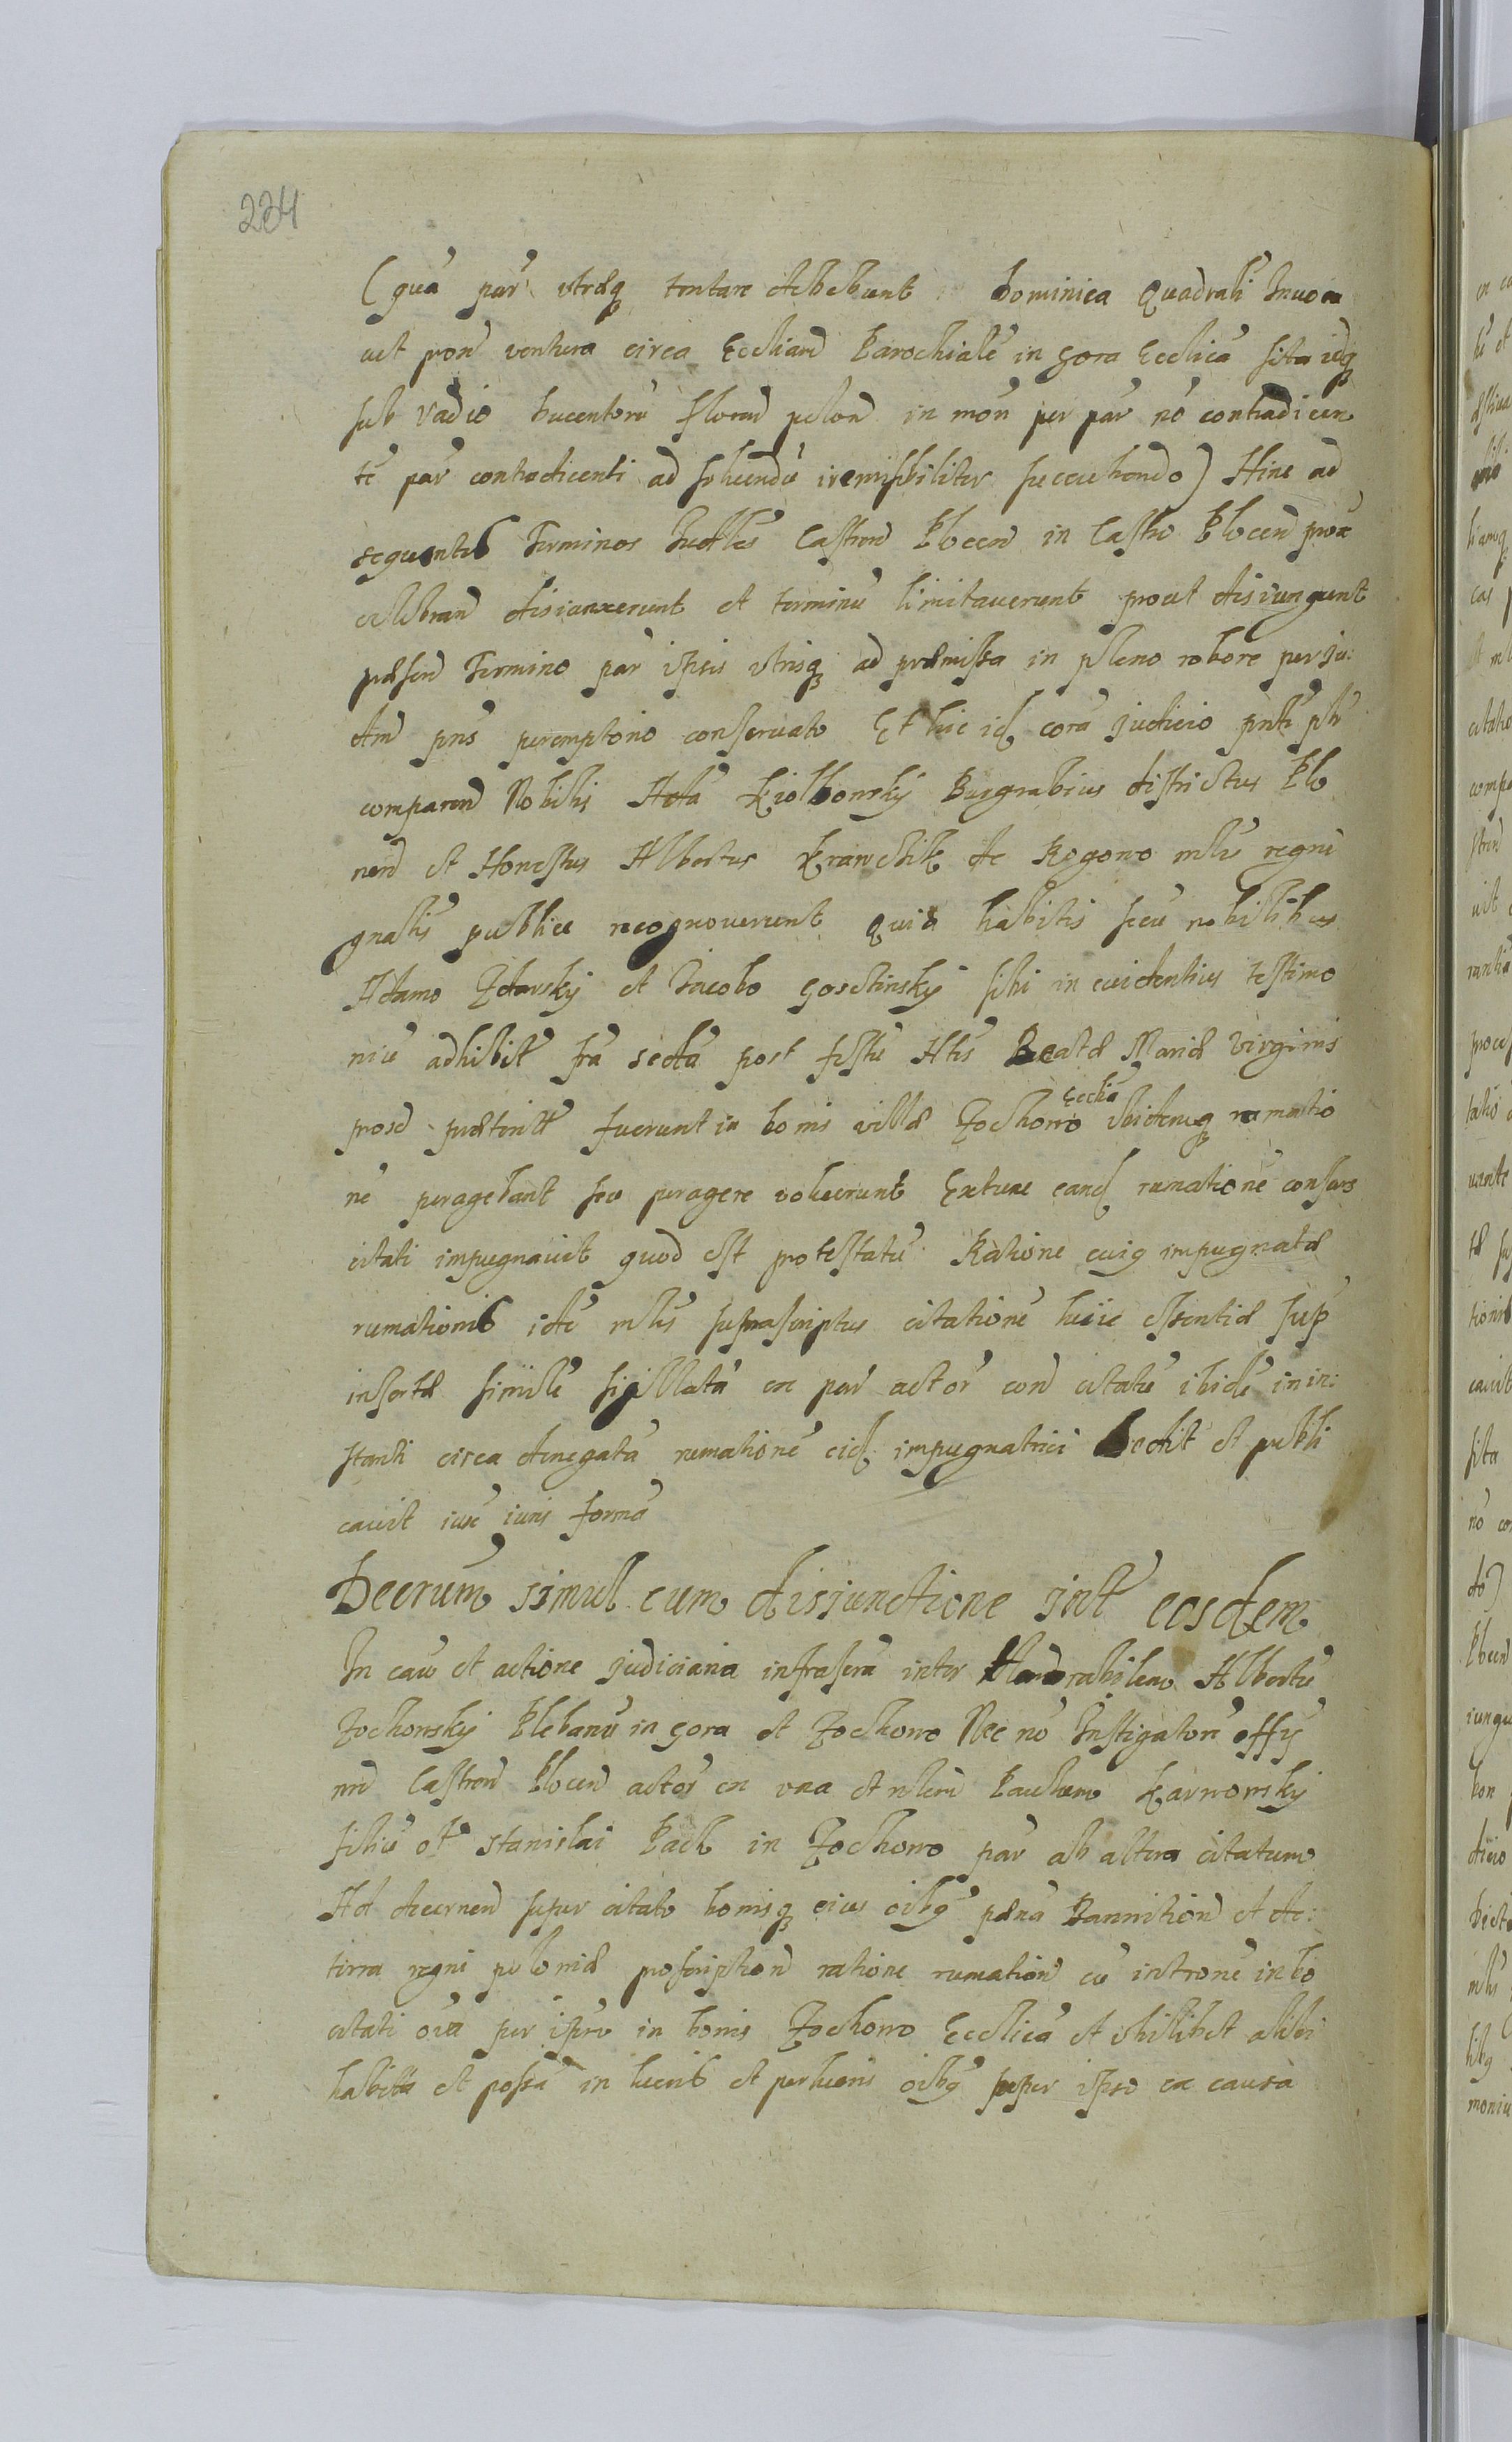 234
(quã par utræq tentare debebunt Dominica Quadrali Invoca
vit pron ventura circa Eccliam Parochialẽ in Gora Ecclica sita idq
sub vadio Ducentorũ florend polond in mon per par nõ contradicen
tẽ par contradicenti ad solvendũ iremissibiliter succubendo) Hinc ad
sequentes Terminos Judles Castrend Plocen in Castro Plocen prox
celebrand disiunxerunt et terminũ limitaverunt prout disiungunt
præsend Termino par ipsis utrisq ad præmissa in pleno robore per Ju:
dm pns peremptorio conservato Et hic id corã Judicio pnti psr
comparend Nobilis Adã Kiolbowsky Burgrabius districtus Plo
nend et Honestus Albertus Krawczik de Rogowo mlis regni
gnalis publice recognoverunt Quia habitis secũ nobilibus
Adamo Zdarsky et Jacobo Gosctinsky sibi in evidentius testimo
niũ adhibit fra sectã post festũ Htis Beatæ Mariæ Virginis
prosd præterit fuerunt in bonis villæ Zochowo Ecclia ibidemq rumatio
nẽ peragebant seu peragere voluerunt Extunc eand rumationẽ consors
citati impugnavit quod est protestatũ Ratione cuiq impugnatæ
rumationis idẽ mlis suprascriptus citationẽ huic essentiæ sup
insertæ similẽ sigillatã ex par actor cond citatũ ibidẽ in in:
stanti circa denegatã rumationẽ eid impugnatrici dedit et publi
cavit iux iuris formã
Decrum simul cum disjunctione int eosdem
In cau et actione judiciaria infrascra inter Honorabilem Albertũ
Zochowsky Plebanũ in Gora et Zochowo Nec nõ Instigatorẽ offy
nri Castrend Plocen actor ex una et nlem Paulum Karnowsky
filiũ ol Stanislai Pacl in Zochowo par ab altera citatum
Ad decernend super citato bonisq eius oibq pæna Bannitiond et de:
terra regni poloniæ proscriptiond ratione rumationd cũ intronẽ in bo
citati oia per ipm in bonis Zochowo Ecclica et ubilibet alibi
habita et possa in lucris et perlucris oibq super ipso ex causa